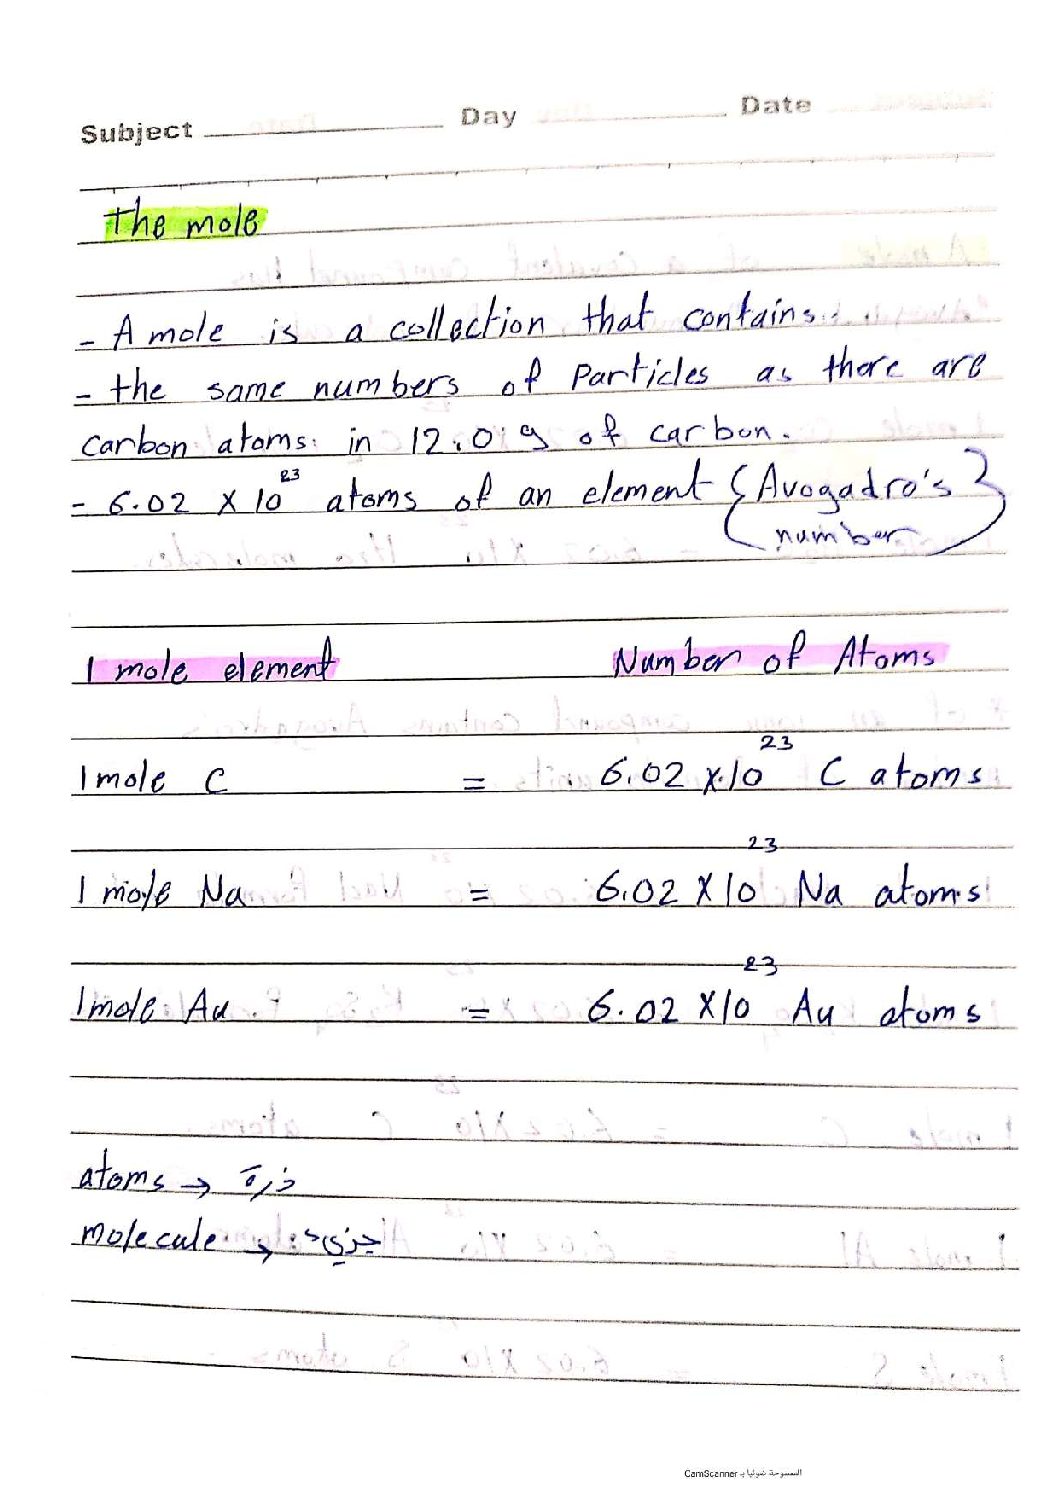 Subject Day Date
The mole
- A mole is a collection that contains:
- the same numbers of Particles as there are
carbon atoms in 12.0 g of carbon.
- 6.02 X 10²³ atoms of an element {Avogadro's
number}
1 mole element Number of Atoms
1 mole C = 6.02 X 10²³ C atoms
1 mole Na = 6.02 X 10²³ Na atoms
1 mole Au = 6.02 X 10²³ Au atoms
atoms → ذرة
molecule → جزيء
الممسوحة ضوئيا بـ CamScanner